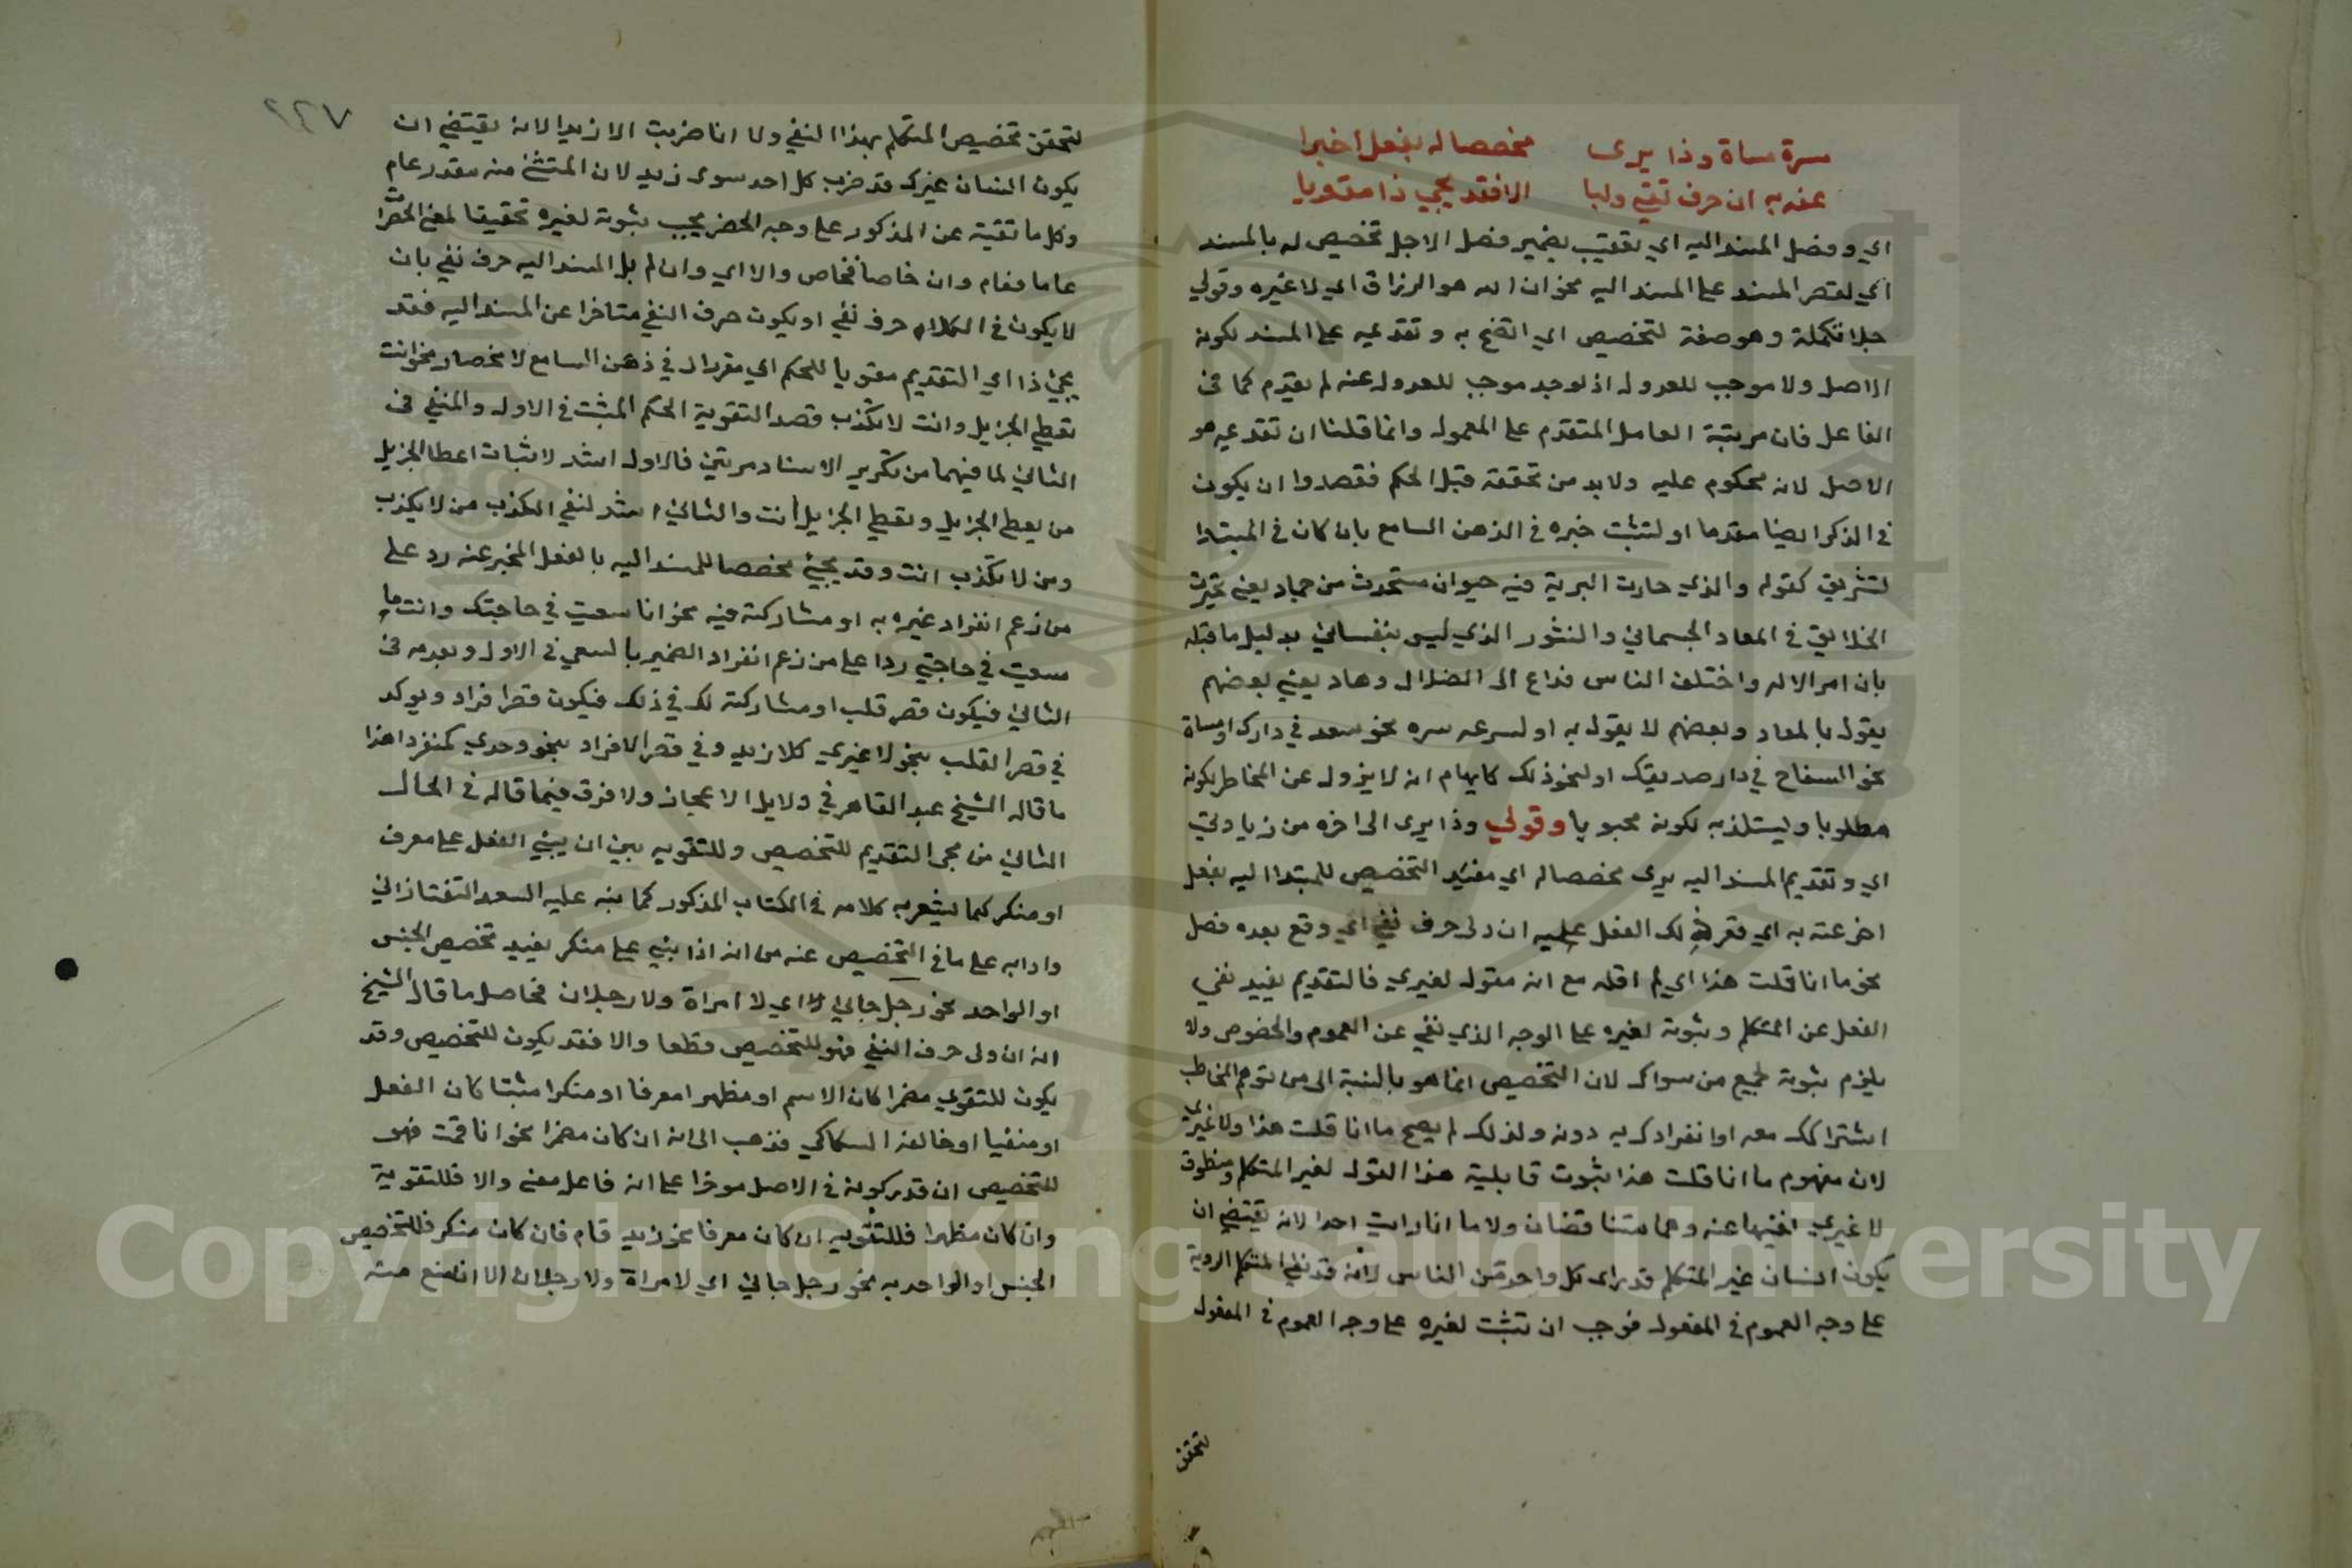 مسرة مساة وذا يرى مخصصا له بفعل اخبرا
عنه به ان حرف نفي وليا الا فقد يجي ذا مقويا
اي وفصل المسند اليه اي تعقيب بضمير فصل لاجل تخصيص له بالمسند
اي لقصر المسند على المسند اليه نحو ان الله هو الرزاق اي لا غيره وقولي
جلا تكملة وهو صفة لتخصيص اي اتضح به وتقديمه على المسند لكونه
الاصل ولا موجب للعدول اذ لو وجد موجب للعدول عنه لم يقدم كما في
الفاعل فان مرتبة العامل المتقدم على المعمول وانما قلنا ان تقديمه هو
الاصل لانه محكوم عليه ولا بد من تحققه قبل الحكم فقصدوا ان يكون
في الذكر ايضا مقدما او لتثبت خبره في الذهن السامع بان كان في المبتدا
لتشريق كقوله والذي حارت البرية فيه حيوان مستحدث من جماد يعني تحيرت
الخلايق في المعاد الجسماني والنشور الذي ليس بنفساني بدليل ما قبله
بان امر الاله واختلف الناس فداع الى الضلال وهاد يعني بعضهم
يقول بالمعاد وبعضهم لا يقول به او لسرعه سره نحو سعد في دارك او مساة
نحو السفاح في دار صديقك او لنحو ذلك كايهام انه لا يزول عن الخاطر لكونه
مطلوبا وليستلذ به لكونه محبوبا وقولي وذا يرى الى اخره من زيادتي
اي وتقديم المسند اليه يرى مخصصا له اي مفيد التخصيص للمبتدا اليه بفعل
اخر عنه به اي قصر ذلك الفعل عليه ان ولى حرف نفي اي وقع بعده فصل
نحو ما انا قلت هذا اي لم اقله مع انه مقول لغيري فالتقديم يفيد نفي
الفعل عن المتكلم وثبوته لغيره على الوجه الذي نفي عن العموم والخصوص ولا
يلزم ثبوته لجميع من سواك لان التخصيص انما هو بالنسبة الى من توهم المخاطب
اشتراكك معه او انفرادك به دونه ولذلك لم يصح ما انا قلت هذا ولا غيري
لان مفهوم ما انا قلت هذا ثبوت قابلية هذا القول لغير المتكلم ومنطوق
لا غيري نفيها عنه وهما متناقضان ولا ما انا رايت احدا لانه يقتضي ان
يكون انسان غير المتكلم قد راى كل واحد من الناس لانه قد نفى المتكلم الروية
على وجه العموم في المفعول فوجب ان تثبت لغيره على وجه العموم في المفعول
لتحقق
٢٢٧
لتحقق تخصيص المتكلم بهذا النفي ولا انا ضربت الا زيدا لانه يقتضي ان
يكون انسان غيرك قد ضرب كل احد سوى زيد لان المستثنى منه مقدر عام
وكل ما تقيته عن المذكور على وجه الحصر يجب ثبوته لغيره تحقيقا لمعنى الحصر ان
عاما فعام وان خاصا فخاص والا اي وان لم يل المسند اليه حرف نفي بان
لا يكون في الكلام حرف نفي او يكون حرف النفي متاخرا عن المسند اليه فقد
يجيئ ذا اي التقديم مقويا للحكم اي مقررا له في ذهن السامع لا مخصصا نحو انت
تعطي الجزيل وانت لا تكذب قصد التقوية الحكم المثبت في الاول والمنفي في
الثاني لما فيهما من تكرير الاسناد مرتين فالاول اشد لاثبات اعطا الجزيل
من يعطي الجزيل وتعطي الجزيل أنت والثاني اشد لنفي الكذب من لا يكذب
ومن لا تكذب انت وقد يجيئ مخصصا للمسند اليه بالفعل المخبر عنه رد على
من زعم انفراد غيره به او مشاركته فيه نحو انا سعيت في حاجتك وانت ما
سعيت في حاجتي ردا على من زعم انفراد الضمير بالسعي في الاول وبعدمه في
الثاني فيكون قصر قلب او مشاركته لك في ذلك فيكون قصر افراد ويوكد
في قصر القلب بنحو لا غيري كلا زيد وفي قصر الافراد بنحو وحدي كمنفردا هذا
ما قاله الشيخ عبد القاهر في دلايل الاعجاز ولا فرق فيما قاله في الحال
الثاني من مجى التقديم للتخصيص وللتقويه بين ان يبني الفعل على معرف
او منكر كما يشعر به كلامه في الكتاب المذكور كما نبه عليه السعد التفتازاني
وادابه على ما في التخصيص عنه من انه اذا بني على منكر يفيد تخصيص الجنس
او الواحد نحو رجل جاني اي لا امراة ولا رجلان فحاصل ما قال الشيخ
انه ان ولى حرف النفي فهو للتخصيص قطعا والا فقد يكون للتخصيص وقد
يكون للتقوي مضمرا كان الاسم او مظهرا معرفا او منكرا مثبتا كان الفعل
او منفيا او خالفه السكاكي فذهب الى انه ان كان مضمرا نحو انا قمت فهو
للتخصيص ان قدر كونه في الاصل موخرا على انه فاعل معنى والا فللتقوية
وان كان مظهرا فللتقويه ان كان معرفا نحو زيد قام فان كان منكر فللتخصيص
الجنس او الواحد به نحو رجل جاني اي لا مراة ولا رجلان الا ان منع منه
Copyright © King Saud University